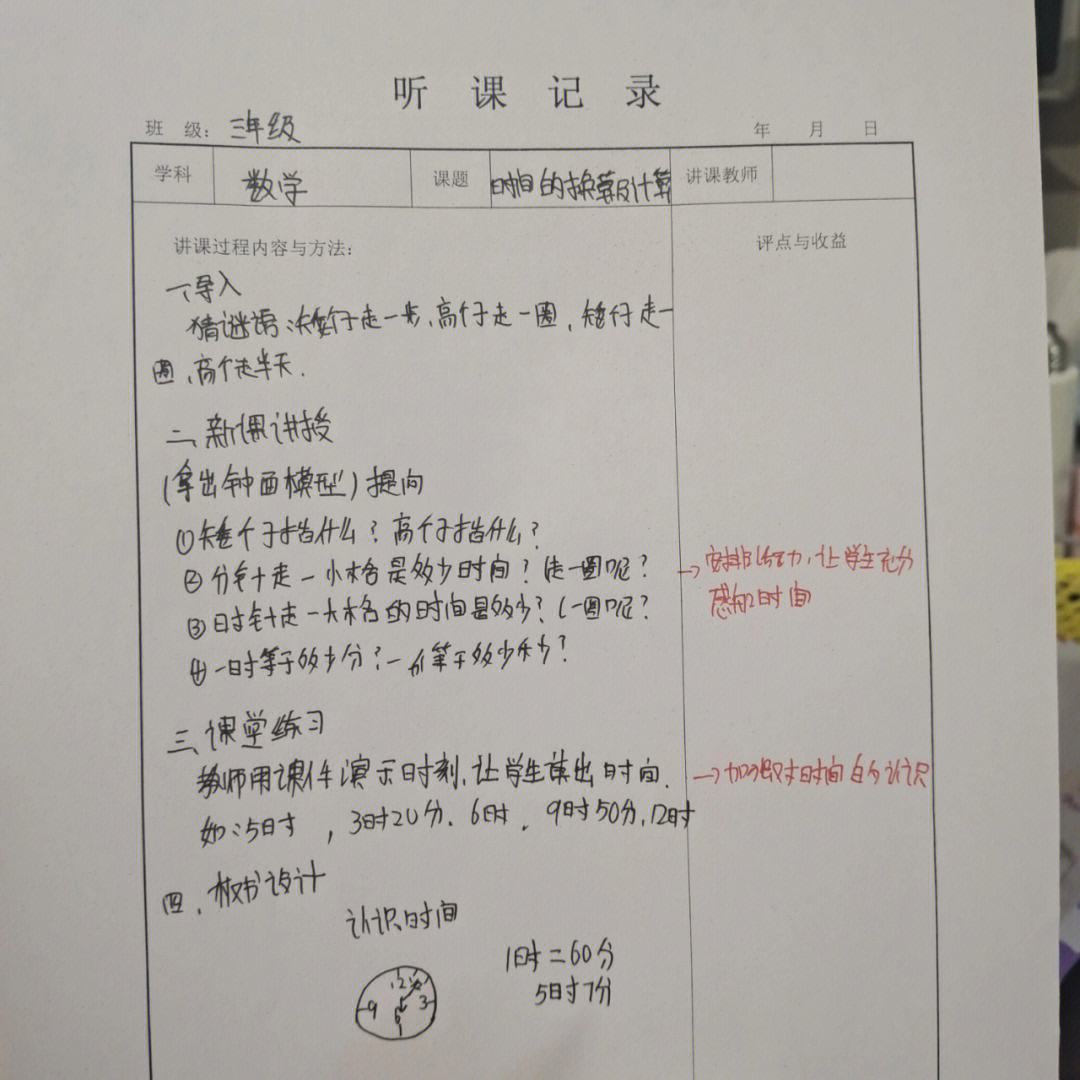 听课记录
班 级: 三年级 年 月 日
学科 数学 课题 时间的换算及计算 讲课教师
讲课过程内容与方法: 评点与收益
一、导入
猜谜语:矮个子走一步、高个子走一圈、矮个子走一
圈、高个走半天.
二、新课讲授
(拿出钟面模型)提问
①矮个子指什么?高个子指什么?
②分针走一小格是多少时间?走一圈呢?
→安排活动,让学生充分
感知时间
③时针走一大格的时间是多少?(一圈呢?
④一时等于多少分?一分等于多少秒?
三、课堂练习
教师用课件演示时刻,让学生读出时间.
→加深对时间的认识
如:5时,3时20分.6时.9时50分,12时
四、板书设计
认识时间
12
9 3
6
1时=60分
5时7分